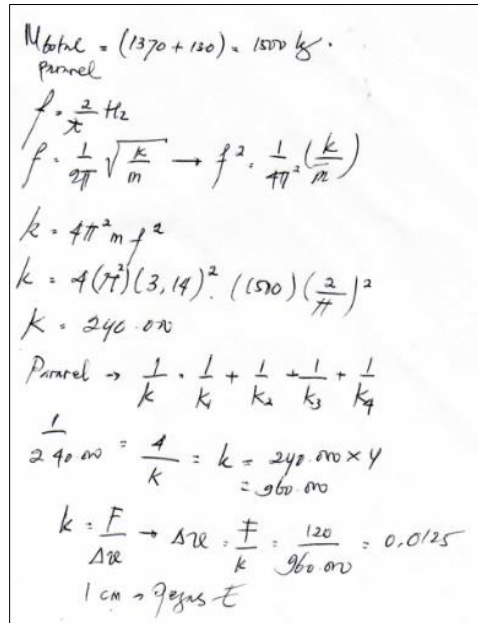 Mtotal = (1370 + 130) = 1500 kg.
f = 2/π Hz
f = 1/2π √(k/m) → f² = 1/4π² (k/m)
k = 4π² m f²
k = 4(π²)(3,14)². (1500) (2/π)²
K = 240.000
→ 1/k = 1/k₁ + 1/k₂ + 1/k₃ + 1/k₄
1/240.000 = 4/K = k = 240.000 x 4
= 960.000
k = F/Δx → Δx = F/k = 120/960.000 = 0,0125
1 cm →